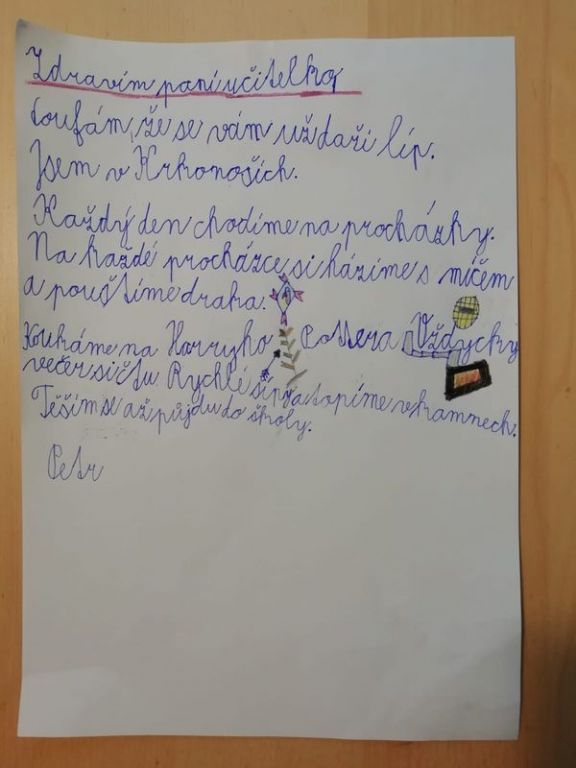 Zdravím paní učitelko,
Doufám, že se vám už daří líp.
Jsem v Krkonoších.
Každý den chodíme na procházky.
Na každé procházce si házíme s míčem
a pouštíme draka.
Koukáme na Harryho Pottera Vždycky
večer si čtu Rychlé šípy a topíme v kamnech.
Těším se až půjdu do školy.
Petr